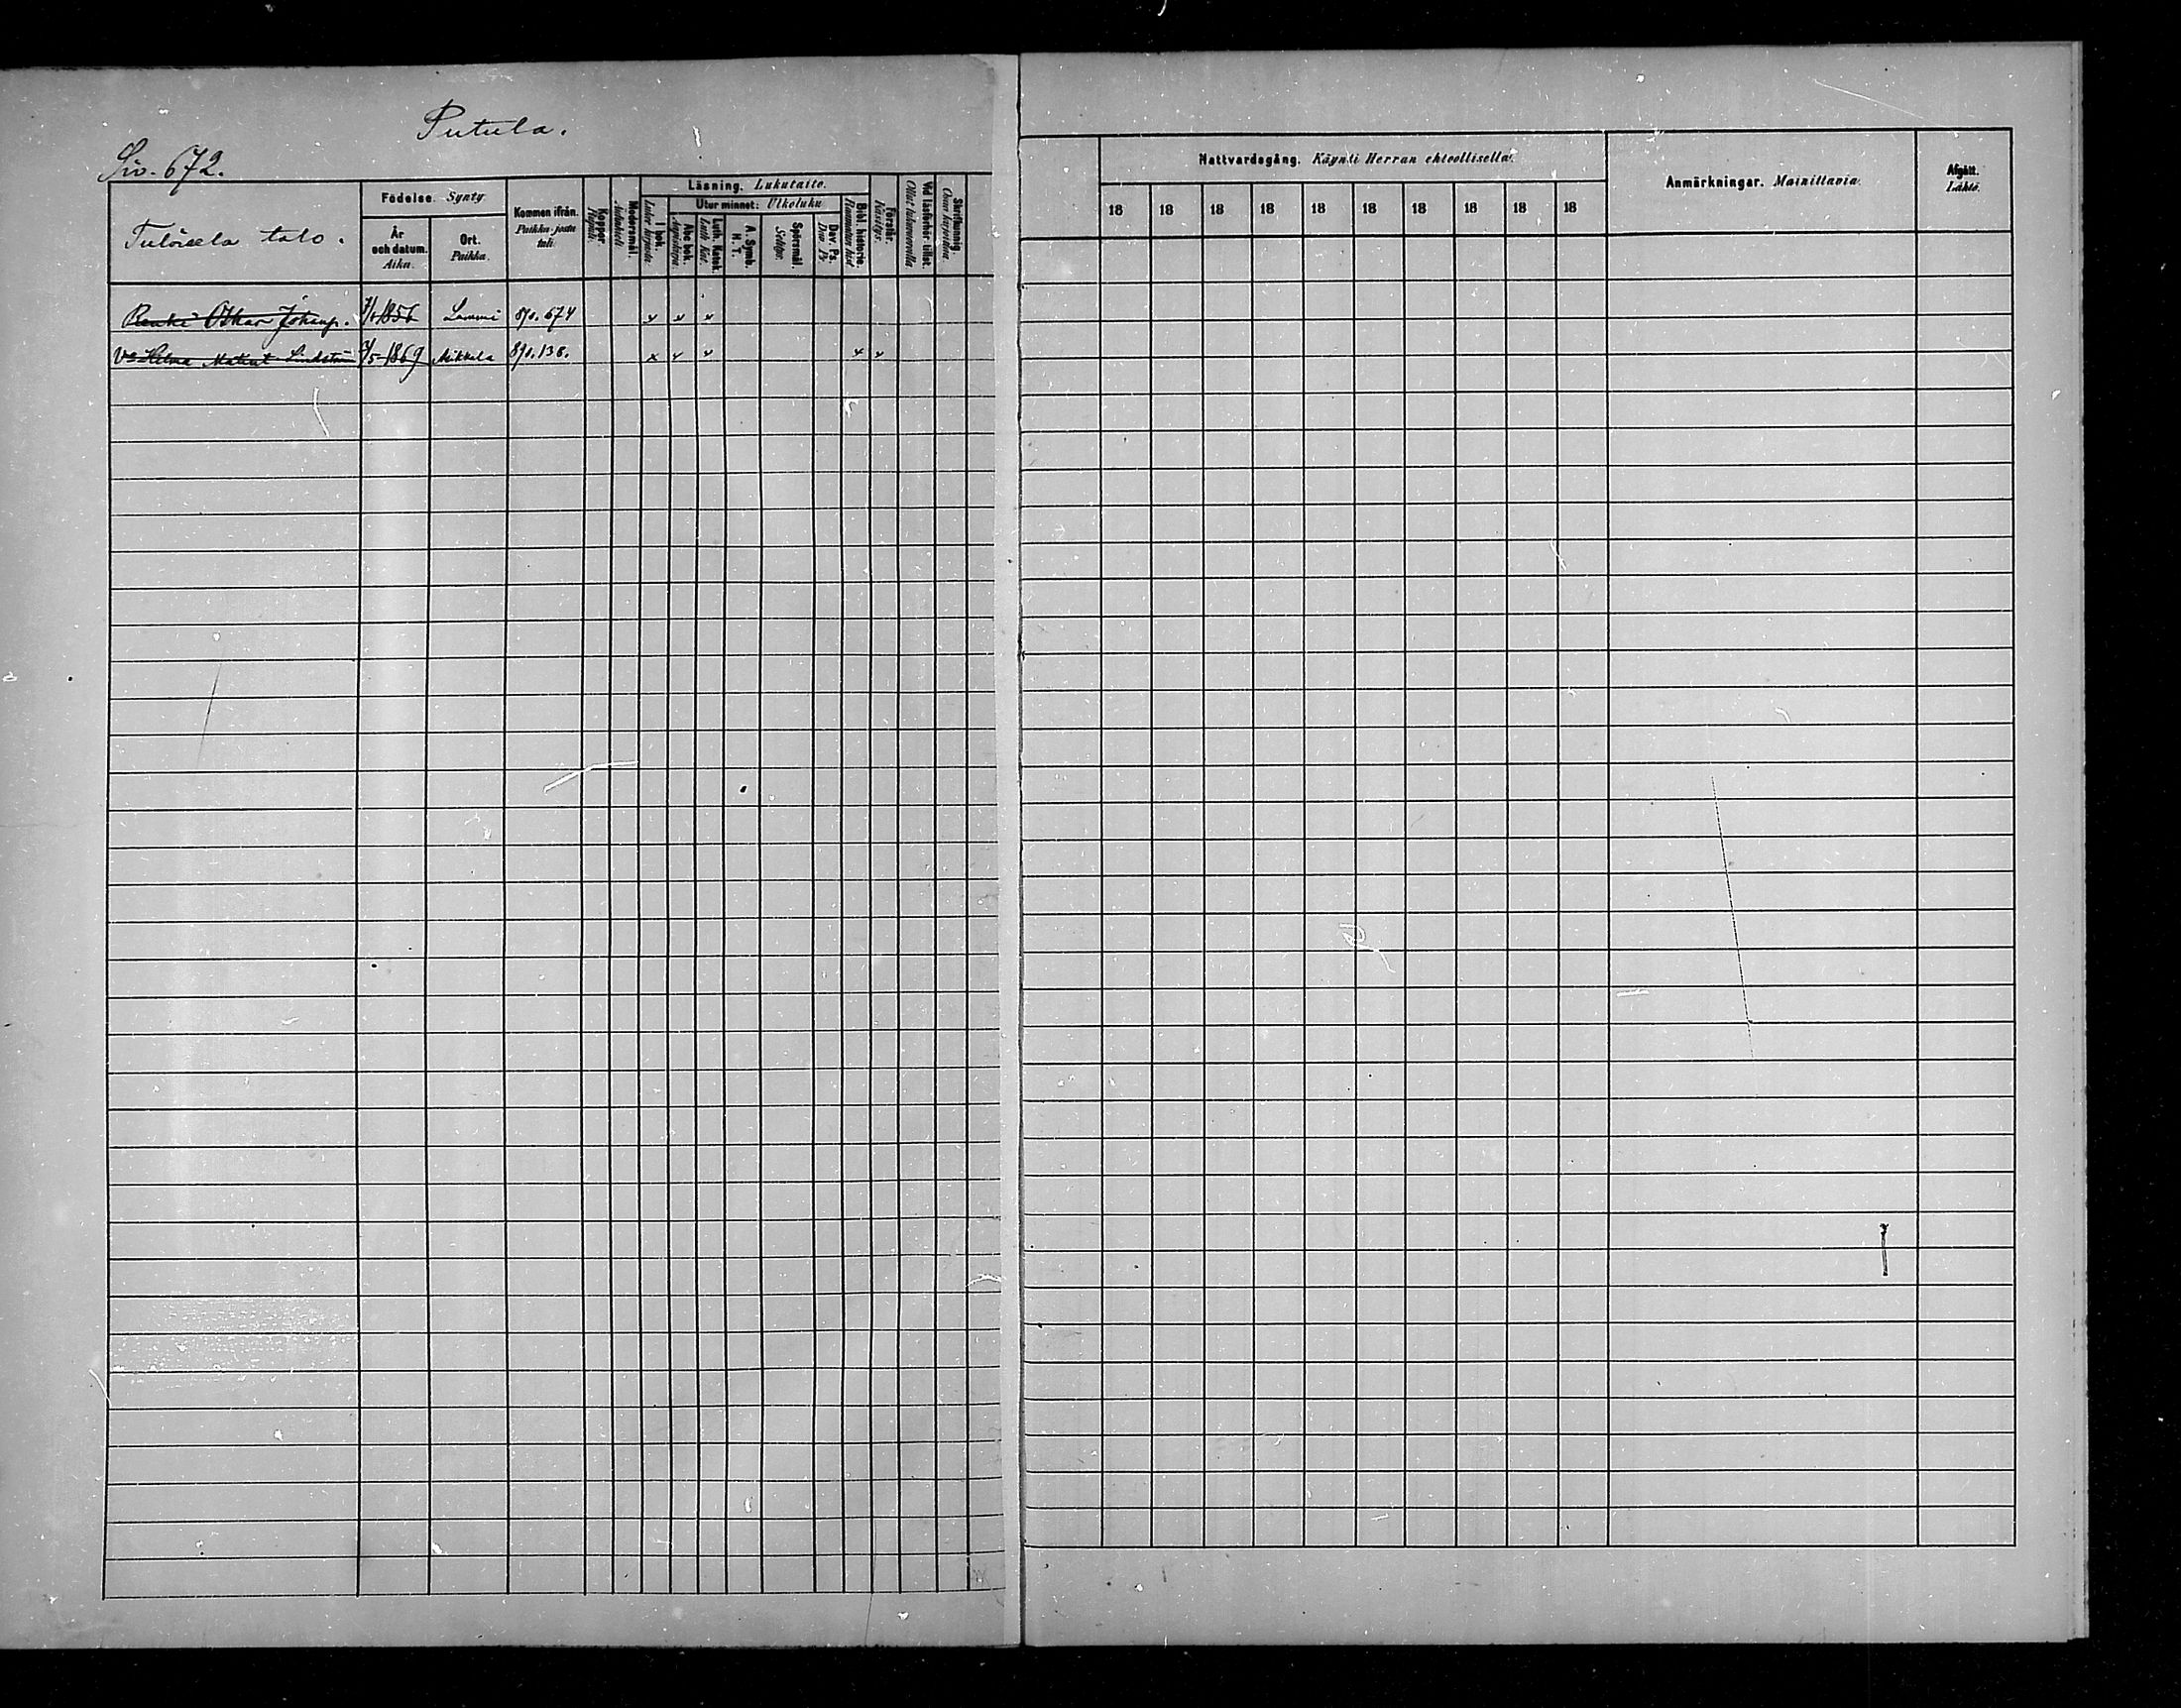 Putula.
Siv. 672.
Tulóisela talo.
Födelse. Synty.
År och datum. Aika.
Ort. Paikka.
Kommen ifrån. Paikka josta tuli.
Koppor. Rupuli.
Modersmål. Äidinkieli.
Läsning. Lukutaito.
I bok. Luku kirjasta.
Utur minnet: Ulkoluku
Abc bok. Aapiskirja.
Luth. Katek. Luth. Kat.
A. Symb. H. T.
Spörsmål. Selitys.
Dav. Ps. Dav. Ps.
Bibl. historie. Raamatun hist.
Förstår. Käsitys.
Vid läsförhör tillst. Ollut lukuvuorolla
Skrifkunnig. Osaa kirjoittaa.
Renki Oskar Johanp. 7/1 1856 Lammi 890.674 x x x
Vo Helma Matint Lindström 3/5 1869 Mikkela 890.138. x x x x x
Nattvardsgång. Käynti Herran ehtoollisella.
18 18 18 18 18 18 18 18 18 18
Anmärkningar. Mainittavia.
Afgått. Lähtö.